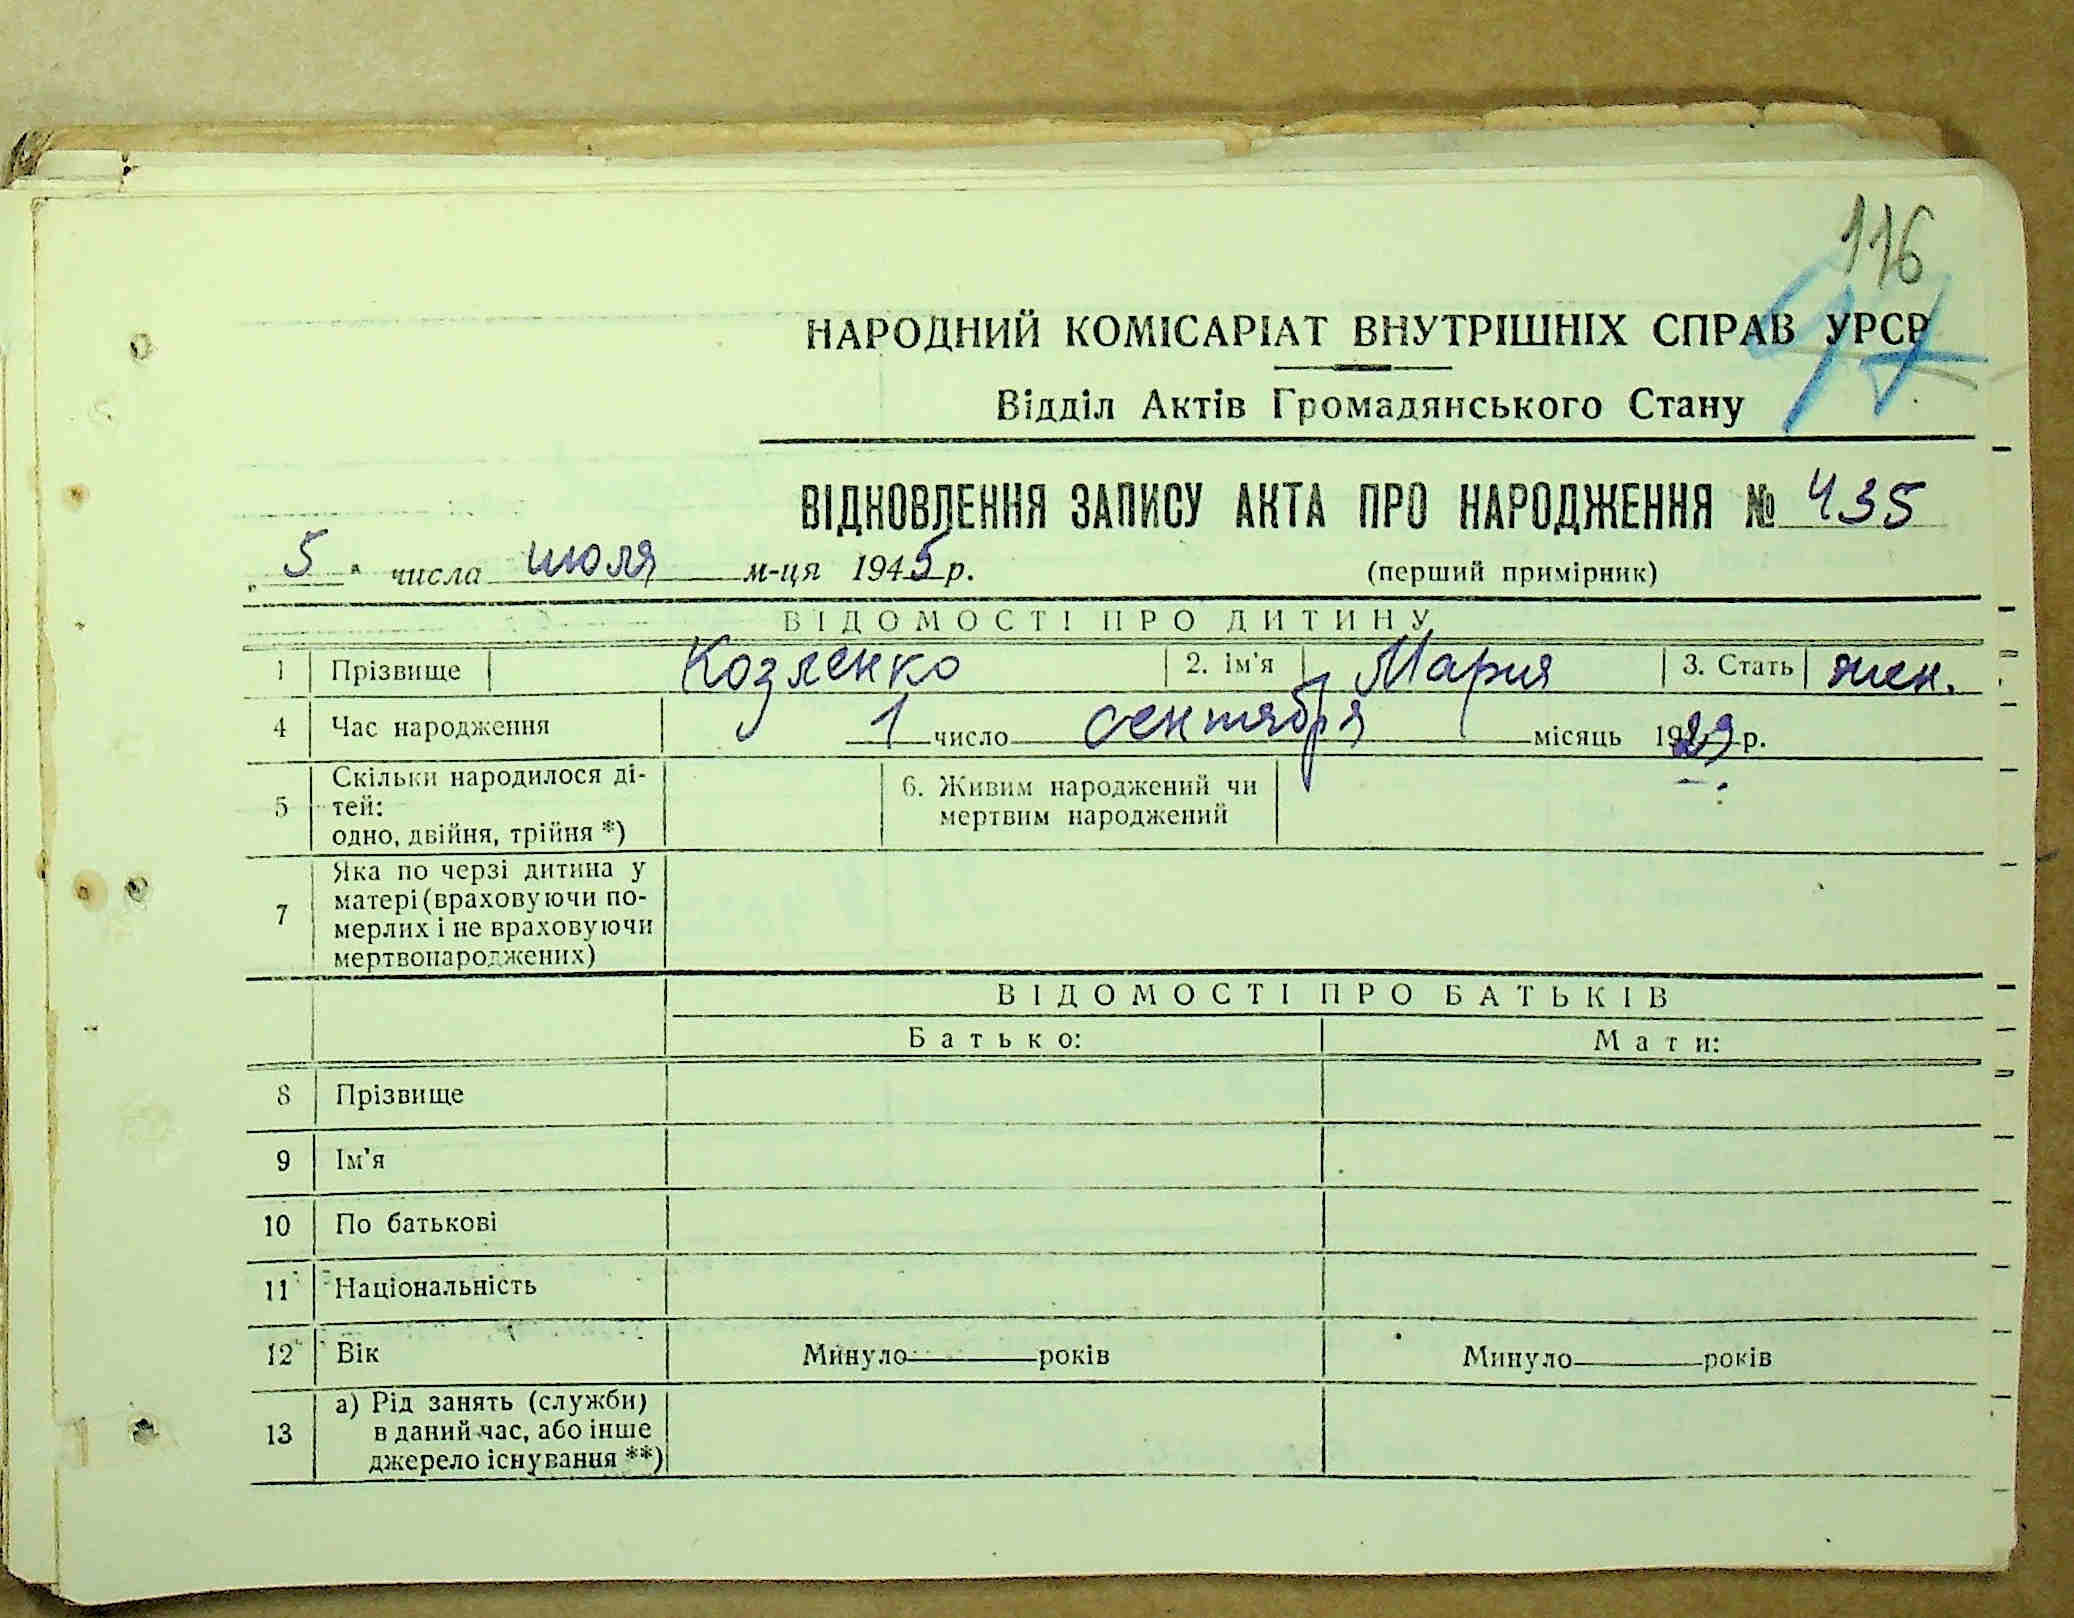 116
НАРОДНИЙ КОМІСАРІАТ ВНУТРІШНІХ СПРАВ УРСР
Відділ Актів Громадянського Стану
ВІДНОВЛЕННЯ ЗАПИСУ АКТА ПРО НАРОДЖЕННЯ № 435
„5“ числа июля м-ця 1945 р. (перший примірник)
ВІДОМОСТІ ПРО ДИТИНУ
1 Прізвище Козленко 2. ім'я Мария 3. Стать жен.
4 Час народження 1 число сентября місяць 1929 р.
5 Скільки народилося ді-
тей:
одно, двійня, трійня *)
6. Живим народжений чи
мертвим народжений
7 Яка по черзі дитина у
матері (враховуючи по-
мерлих і не враховуючи
мертвонароджених)
ВІДОМОСТІ ПРО БАТЬКІВ
Батько: Мати:
8 Прізвище
9 Ім'я
10 По батькові
11 Національність
12 Вік Минуло років Минуло років
13 а) Рід занять (служби)
в даний час, або інше
джерело існування **)